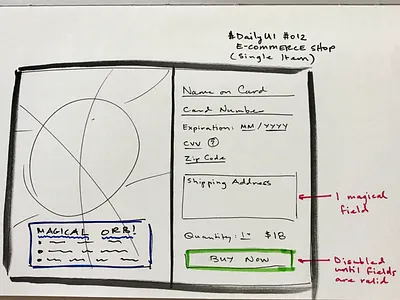 #DailyUI #012
E-COMMERCE SHOP
(Single Item)
Name on Card
Card Number
Expiration: MM / YYYY
CVV ?
Zip Code
Shipping Address
1 magical
field
Quantity: 1 $18
BUY NOW
Disabled
until fields
are valid
MAGICAL ORB!